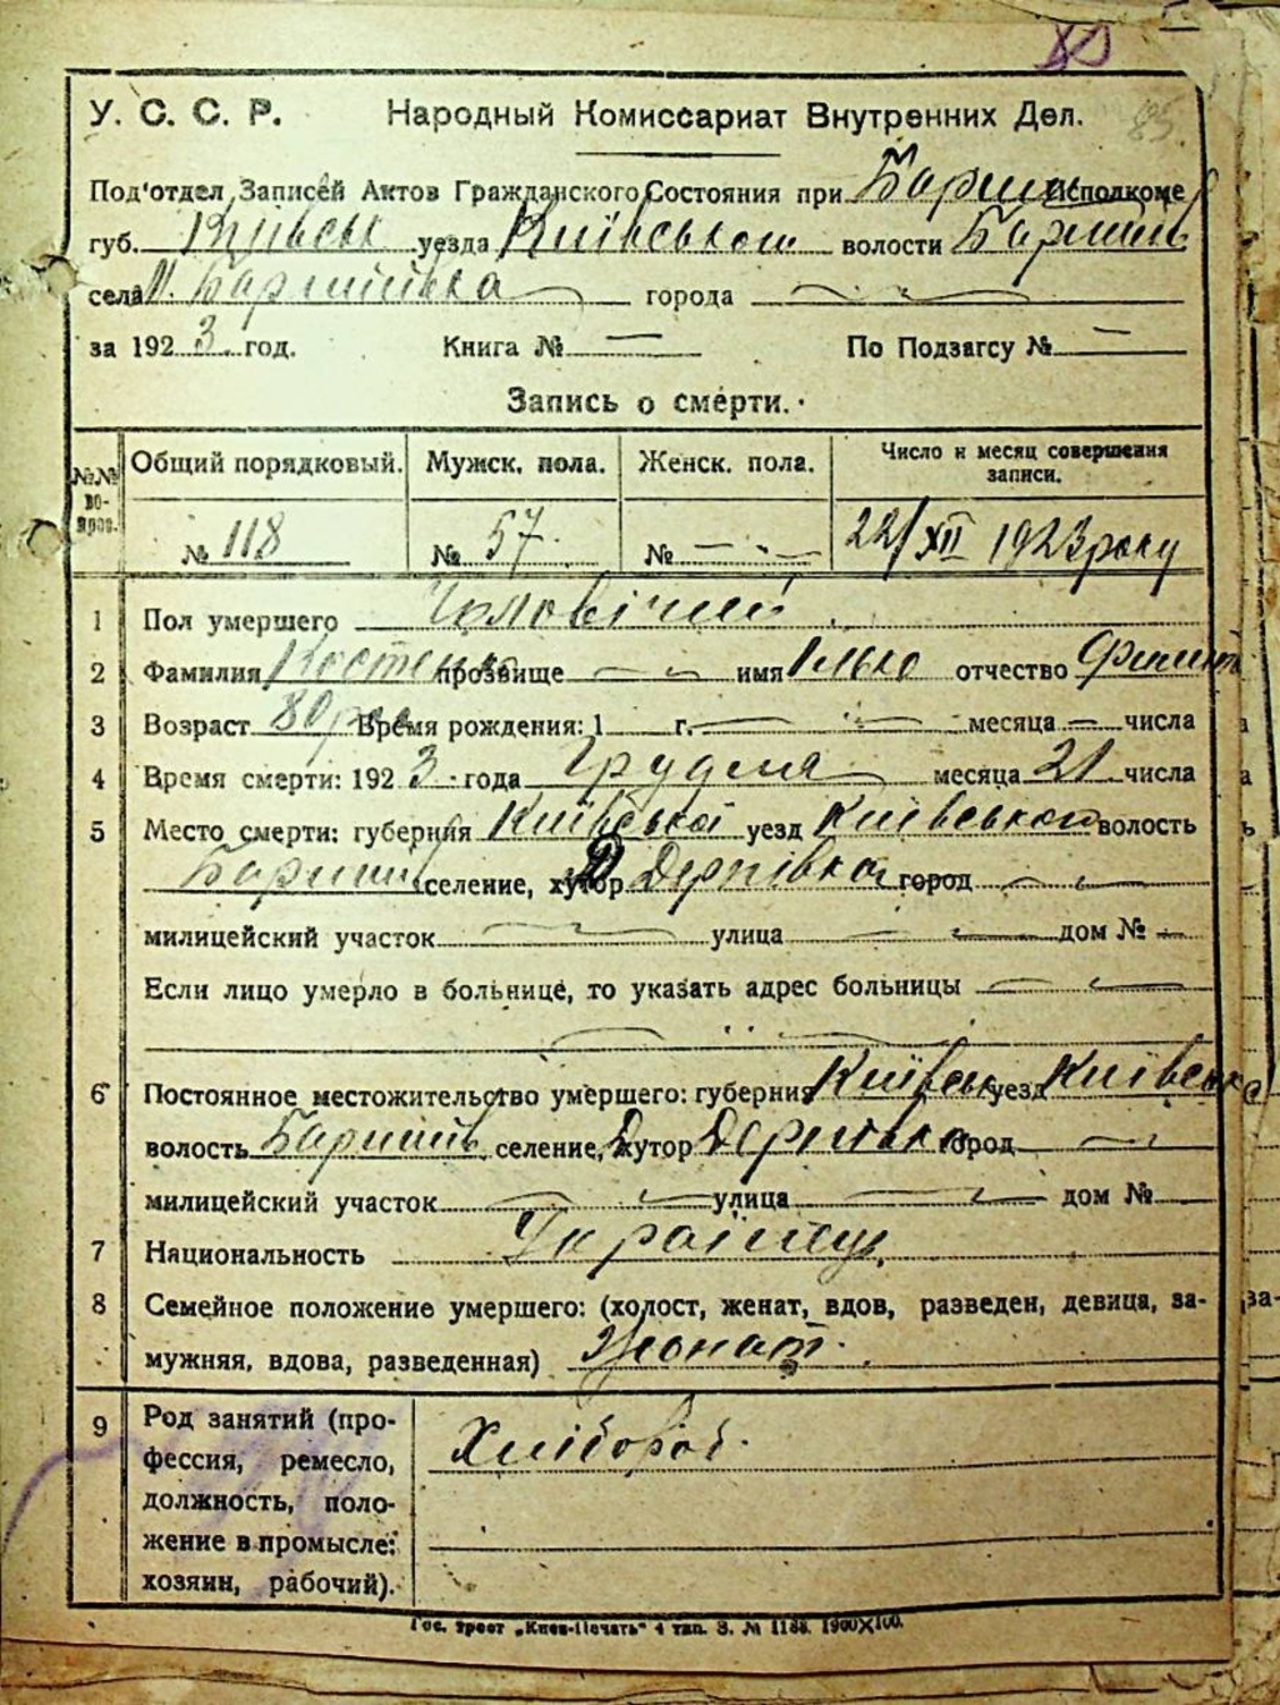 80
85.
У. С. С. Р. Народный Комиссариат Внутренних Дел.
Под'отдел Записей Актов Гражданского Состояния при Баришів Исполкоме
губ. Київськ уезда Київського волости Баришів
села М. Баришівка города
за 1923. год. Книга № — По Подзагсу № —
Запись о смерти.
№№ во-прос. Общий порядковый. Мужск. пола. Женск. пола. Число и месяц совершения записи.
№ 118 № 57. № 22/XII 1923 року
1 Пол умершего Чоловічий
2 Фамилия Костенко прозвище — имя Ілько отчество
3 Возраст 80 рок Время рождения: 1 г. — месяца — числа
4 Время смерти: 1923 года Грудня месяца 21 числа
5 Место смерти: губерния Київської уезд Київського волость
Баришів селение, хутор Дернівка город
милицейский участок улица дом № —
Если лицо умерло в больнице, то указать адрес больницы
6 Постоянное местожительство умершего: губерния Київськ уезд Київськ
волость Баришів селение, хутор Дернівка город
милицейский участок улица дом №
7 Национальность Українець.
8 Семейное положение умершего: (холост, женат, вдов, разведен, девица, за-
мужняя, вдова, разведенная) Жонат.
9 Род занятий (про- Хлібороб.
фессия, ремесло,
должность, поло-
жение в промысле:
хозяин, рабочий).
Гос. трест „Киев-Печать“ 4 тип. З. № 1138. 1900X100.